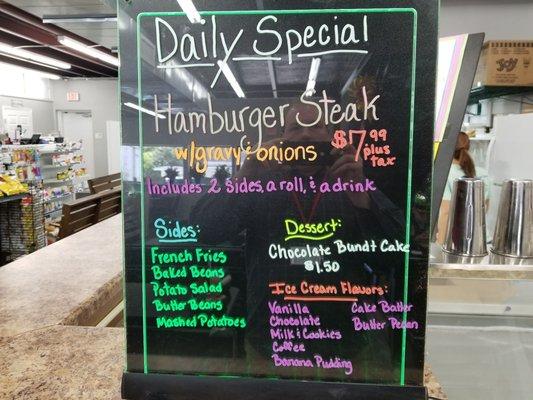 Daily Special
Hamburger Steak
w/gravy & onions
$7.99
plus
tax
Includes 2 sides, a roll, & a drink
Sides:
French Fries
Baked Beans
Potato Salad
Butter Beans
Mashed Potatoes
Dessert:
Chocolate Bundt Cake
$1.50
Ice Cream Flavors:
Vanilla
Chocolate
Milk & Cookies
Coffee
Banana Pudding
Cake Batter
Butter Pecan
Joy